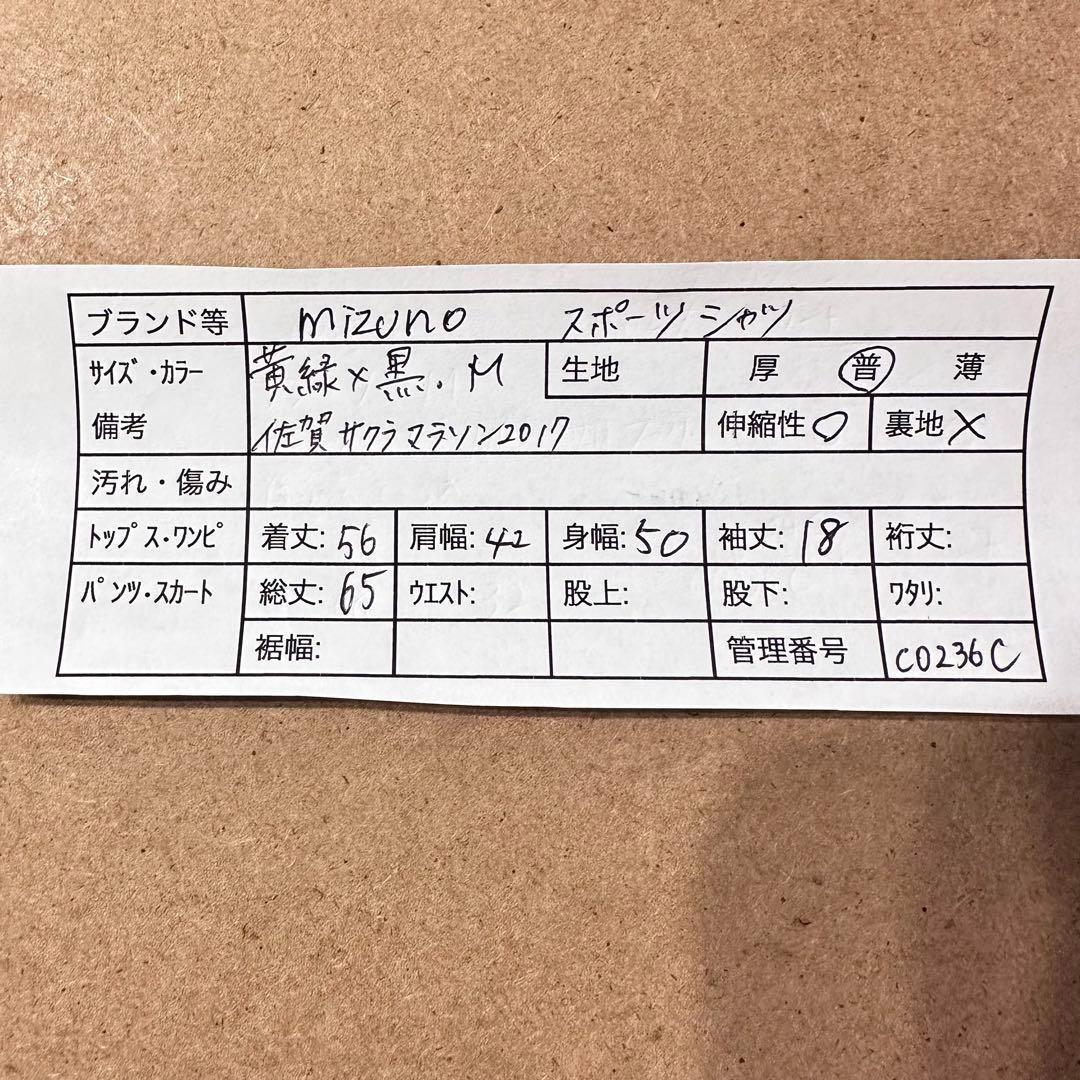 ブランド等 mizuno スポーツシャツ
サイズ・カラー 黄緑×黒.M 生地 厚 普 薄
備考 佐賀サクラマラソン2017 伸縮性○ 裏地×
汚れ・傷み
トップス・ワンピ 着丈:56 肩幅:42 身幅:50 袖丈:18 裄丈:
パンツ・スカート 総丈:65 ウエスト: 股上: 股下: ワタリ:
裾幅: 管理番号 C0236C